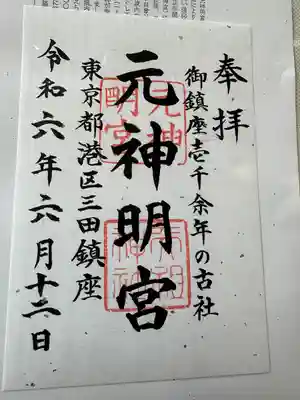 奉拝
御鎮座壱千余年の古社
元神明宮
東京都港区三田鎮座
令和六年六月十二日
元神明宮